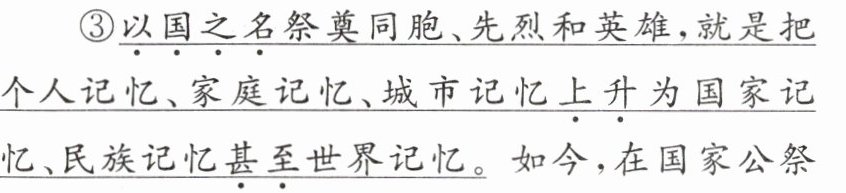 ③以国之名祭奠同胞、先烈和英雄,就是把
个人记忆、家庭记忆、城市记忆上升为国家记
忆、民族记忆甚至世界记忆。如今,在国家公祭